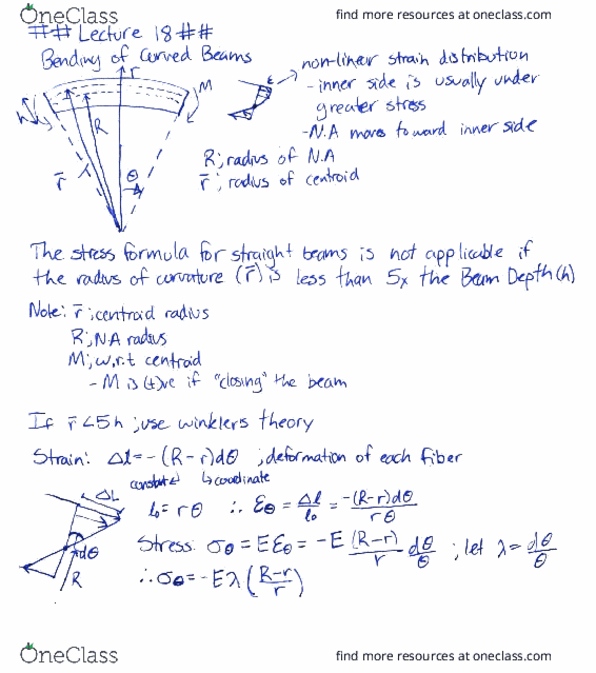 OneClass
find more resources at oneclass.com
## Lecture 18##
Bending of Curved Beams
r
M
R
r̄
θ
non-linear strain distribution
-inner side is usually under
greater stress
-N.A moves toward inner side
R; radius of N.A
r̄; radius of centroid
The stress formula for straight beams is not applicable if
the radius of curvature (r̄) is less than 5x the Beam Depth(h)
Note: r̄; centroid radius
R; NA radius
M; w.r.t centroid
- M is (+)ve if "closing" the beam
If r̄<5h ; use winklers theory
Strain: Δl=-(R-r)dθ ; deformation of each fiber
constant ↳coordinate
ΔL
l₀=rθ ∴ εθ=Δl/l₀=-(R-r)dθ/rθ
dθ
R
Stress: σθ=Eεθ=-E (R-r)/r dθ/θ ; let λ=dθ/θ
∴σθ=-Eλ(R-r/r)
OneClass
find more resources at oneclass.com